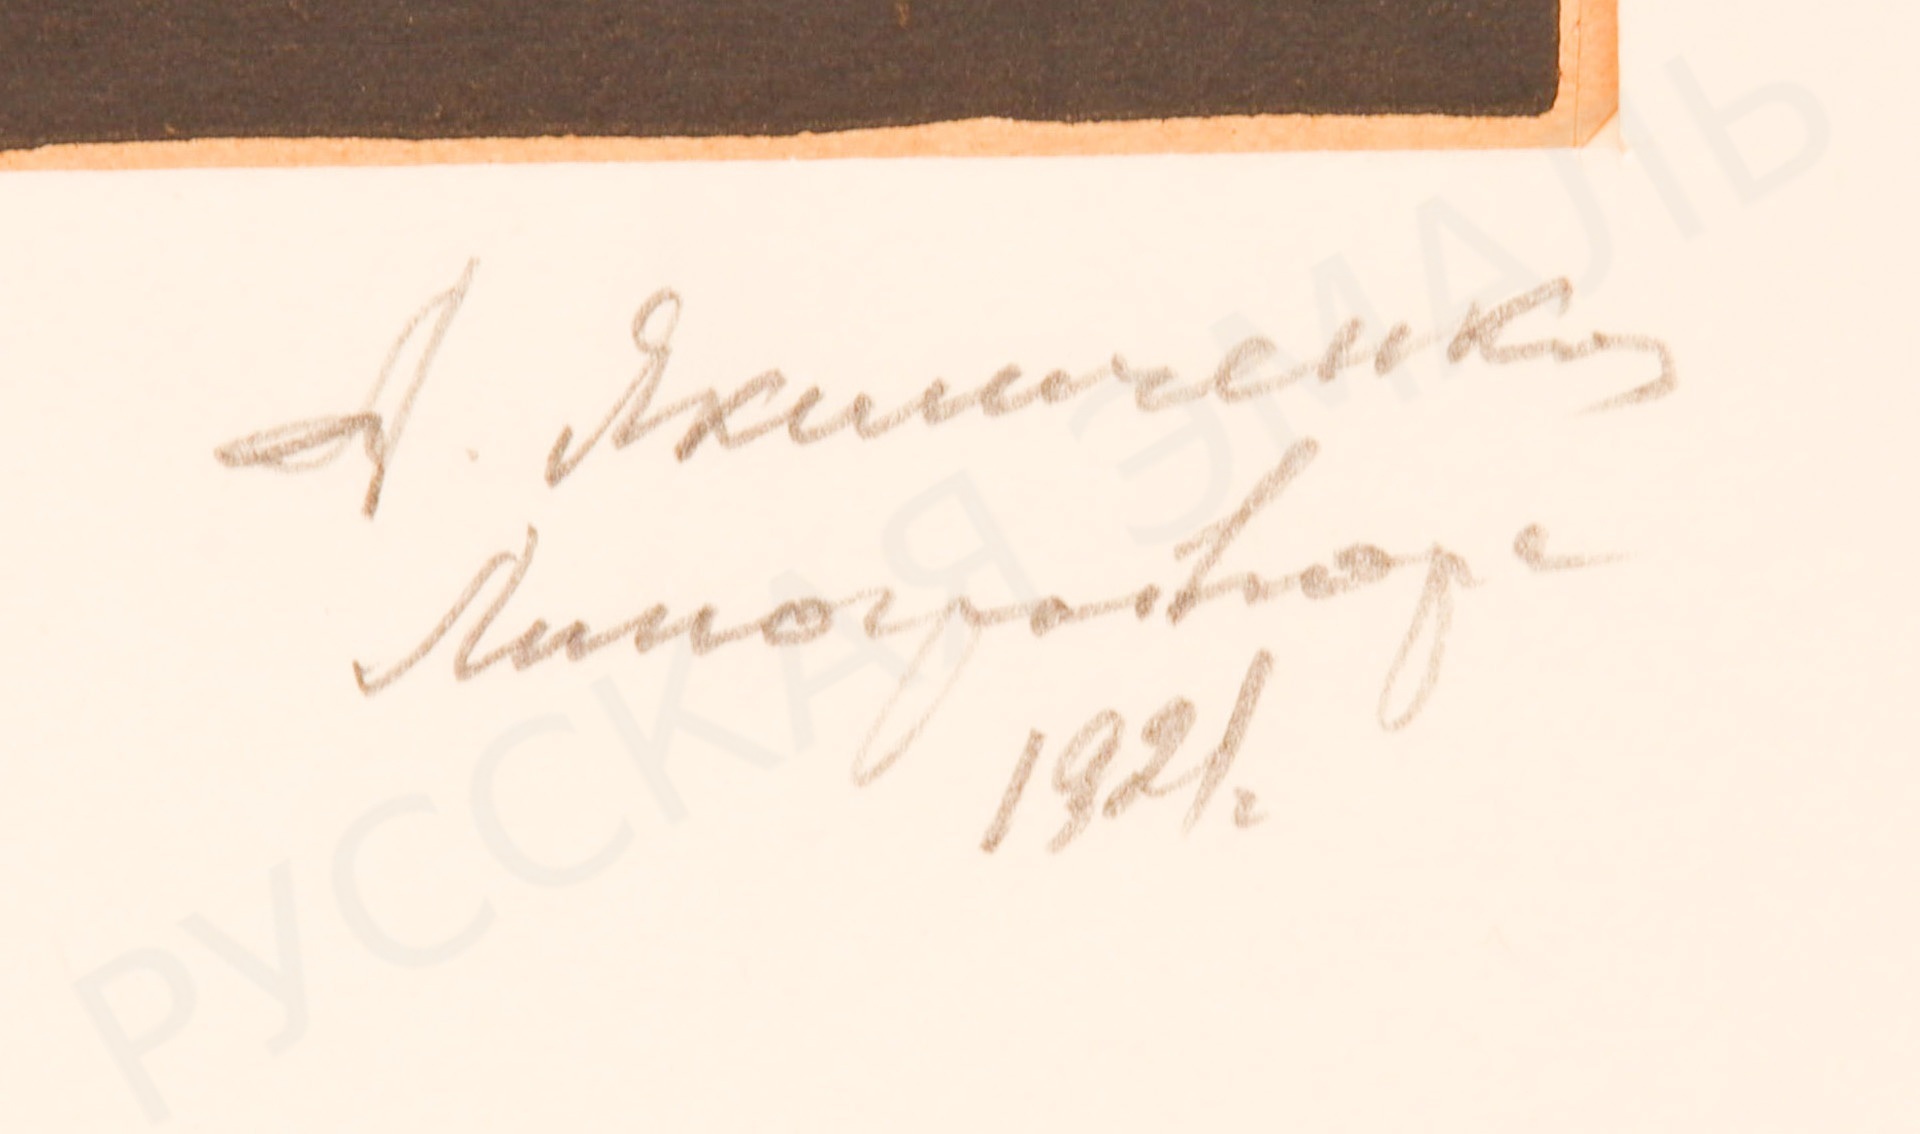 А. Якимченко
Линогравюра
1921г.
РУССКАЯ ЭМАЛЬ